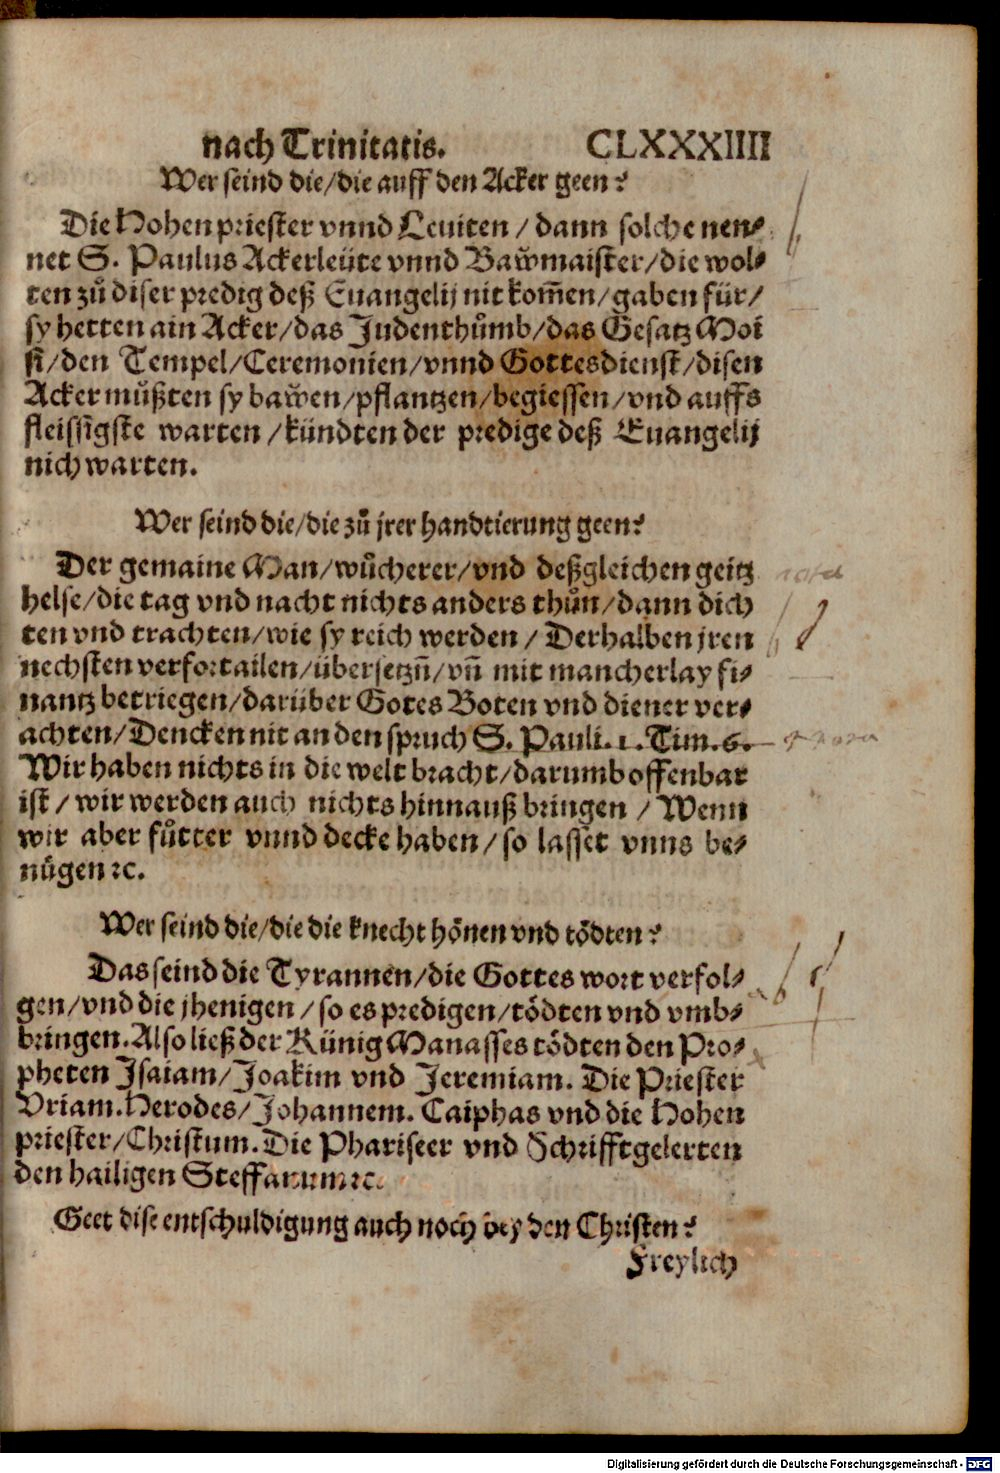 nach Trinitatis. CLXXXIIII
Wer seind die/die auff den Acker geen?
Die Hohenpriester vnnd Leuiten/dann solche nen⸗
net S. Paulus Ackerleüte vnnd Baẘmaister/die wol⸗
ten zů diser predig deß Euangelij nit kom̄en/gaben für/
sy hetten ain Acker/das Judenthůmb/das Gesatz Moi
si/den Tempel/Ceremonien/vnnd Gottesdienst/disen
Acker mu̇̊ßten sy baẘen/pflantzen/begiessen/vnd auffs
fleissigste warten/kündten der predige deß Euangelij
nich warten.
Wer seind die/die zů jrer handtierung geen?
Der gemaine Man/wůcherer/vnd deßgleichen geitz
helse/die tag vnd nacht nichts anders thůn/dann dich
ten vnd trachten/wie sy reich werden/Derhalben jren
nechsten verfortailen/übersetzn̄/vn̄ mit mancherlay fi⸗
nantz betriegen/darüber Gotes Boten vnd diener ver⸗
achten/Dencken nit an den spruch S. Pauli.1.Tim.6.
Wir haben nichts in die welt bracht/darumb offenbar
ist/wir werden auch nichts hinnauß bringen/Wenn
wir aber fůtter vnnd decke haben/so lasset vnns be⸗
nůgen ꝛc.
Wer seind die/die die knecht hönen vnd tödten?
Das seind die Tyrannen/die Gottes wort verfol⸗
gen/vnd die jhenigen/so es predigen/tödten vnd vmb⸗
bringen. Also ließ der Künig Manasses tödten den Pro⸗
pheten Isaiam/Joakim vnd Jeremiam. Die Priester
Vriam. Herodes/Johannem. Caiphas vnd die Hohen
priester/Christum. Die Phariseer vnd Schrifftgelerten
den hailigen Steffanum ꝛc.
Geet dise entschuldigung auch noch bey den Christen?
Freylich
Digitalisierung gefördert durch die Deutsche Forschungsgemeinschaft - DFG